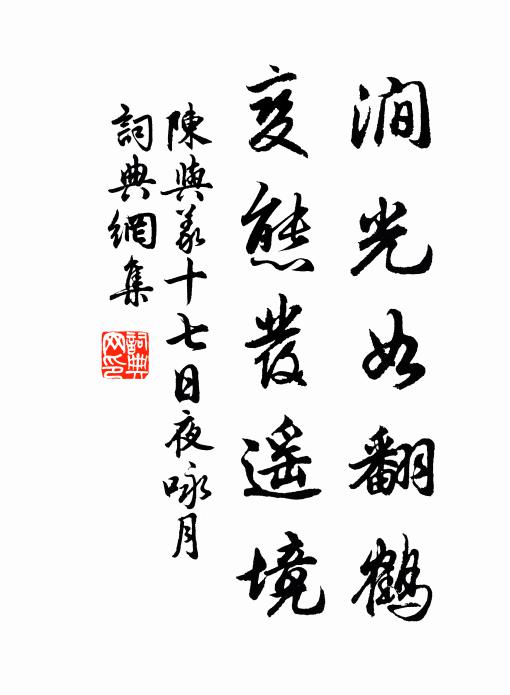 澗光如翻鶴
變態發遙境
陳與義十七日夜咏月
詞典網集
詞典網印